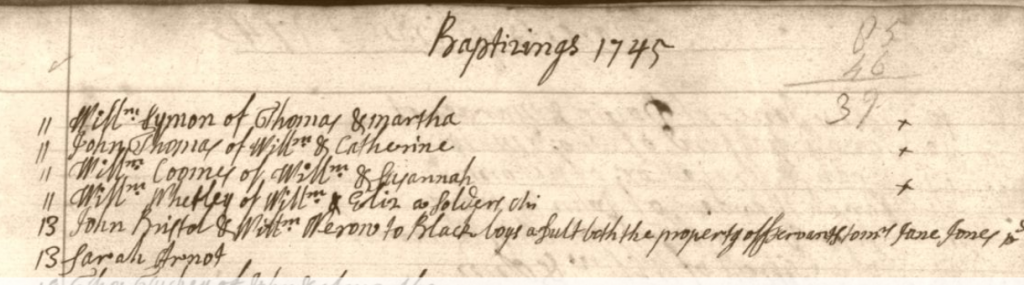 Baptizings 1745
85
46
39
" Willm Symon of Thomas & martha +
" John Thomas of Willm & Catherine +
" Willm Coomes of Willm & Susannah +
" Willm Whetley of Willm & Eliz a Solders
13 John Bristol & Willm to Black boys adult both the property of Servants to mrs Jane Jones
13 Sarah Arnot